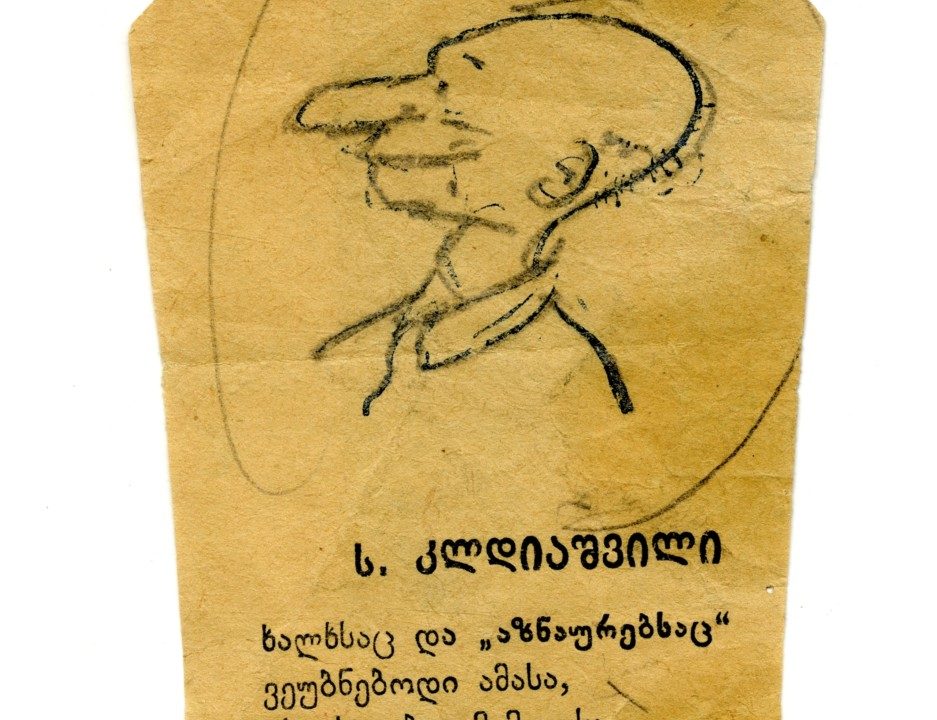 ს. კლდიაშვილი
ხალხსაც და „აზნაურებსაც“
ვეუბნებოდი ამასა,